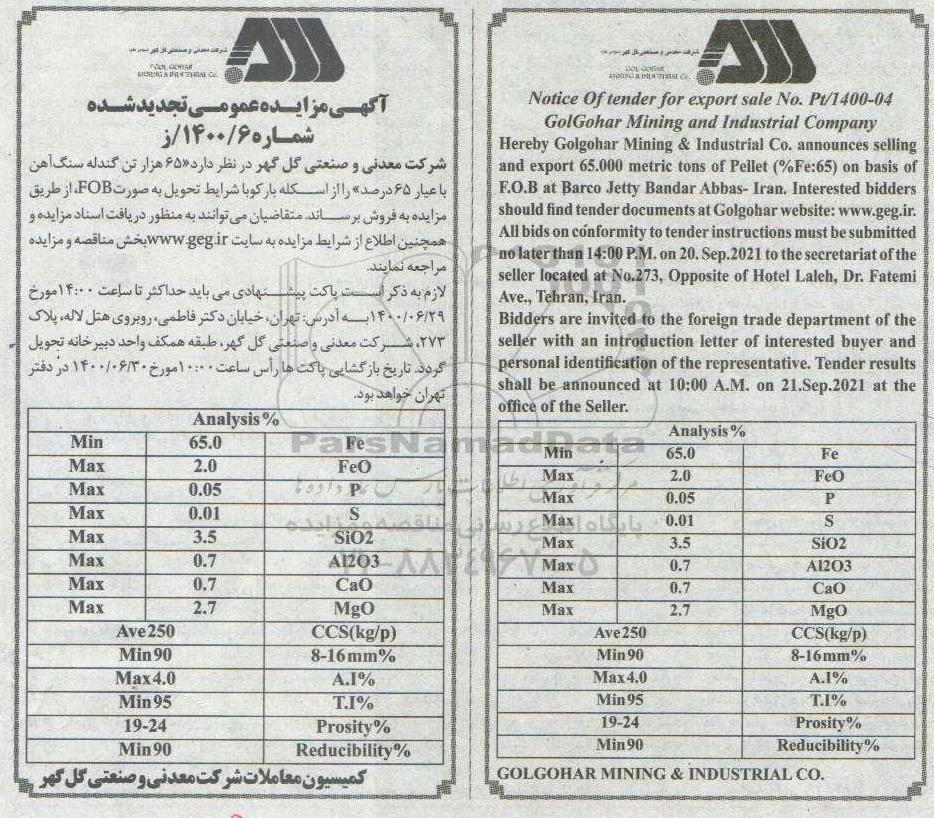 شرکت معدنی و صنعتی گل گهر
GOL GOHAR
MINING & INDUSTRIAL Co.
آگهی مزایده عمومی تجدید شده
شماره ۱۴۰۰/۶/ز
شرکت معدنی و صنعتی گل گهر در نظر دارد «۶۵ هزار تن گندله سنگ آهن
با عیار ۶۵ درصد» را از اسکله بارکو با شرایط تحویل به صورت FOB، از طریق
مزایده به فروش برساند. متقاضیان می توانند به منظور دریافت اسناد مزایده و
همچنین اطلاع از شرایط مزایده به سایت www.geg.ir بخش مناقصه و مزایده
مراجعه نمایند.
لازم به ذکر است پاکت پیشنهادی می باید حداکثر تا ساعت ۱۴:۰۰ مورخ
۱۴۰۰/۰۶/۲۹ به آدرس: تهران، خیابان دکتر فاطمی، روبروی هتل لاله، پلاک
۲۷۳، شرکت معدنی و صنعتی گل گهر، طبقه همکف واحد دبیرخانه تحویل
گردد. تاریخ بازگشایی پاکت ها رأس ساعت ۱۰:۰۰ مورخ ۱۴۰۰/۰۶/۳۰ در دفتر
تهران خواهد بود.
Analysis%
Min 65.0 Fe
Max 2.0 FeO
Max 0.05 P
Max 0.01 S
Max 3.5 SiO2
Max 0.7 Al2O3
Max 0.7 CaO
Max 2.7 MgO
Ave 250 CCS(kg/p)
Min 90 8-16mm%
Max 4.0 A.I%
Min 95 T.I%
19-24 Prosity%
Min 90 Reducibility%
کمیسیون معاملات شرکت معدنی و صنعتی گل گهر
شرکت معدنی و صنعتی گل گهر
GOL GOHAR
MINING & INDUSTRIAL Co.
Notice Of tender for export sale No. Pt/1400-04
GolGohar Mining and Industrial Company
Hereby Golgohar Mining & Industrial Co. announces selling
and export 65.000 metric tons of Pellet (%Fe:65) on basis of
F.O.B at Barco Jetty Bandar Abbas- Iran. Interested bidders
should find tender documents at Golgohar website: www.geg.ir.
All bids on conformity to tender instructions must be submitted
no later than 14:00 P.M. on 20. Sep.2021 to the secretariat of the
seller located at No.273, Opposite of Hotel Laleh, Dr. Fatemi
Ave., Tehran, Iran.
Bidders are invited to the foreign trade department of the
seller with an introduction letter of interested buyer and
personal identification of the representative. Tender results
shall be announced at 10:00 A.M. on 21.Sep.2021 at the
office of the Seller.
Analysis%
Min 65.0 Fe
Max 2.0 FeO
Max 0.05 P
Max 0.01 S
Max 3.5 SiO2
Max 0.7 Al2O3
Max 0.7 CaO
Max 2.7 MgO
Ave 250 CCS(kg/p)
Min 90 8-16mm%
Max 4.0 A.I%
Min 95 T.I%
19-24 Prosity%
Min 90 Reducibility%
GOLGOHAR MINING & INDUSTRIAL CO.
ParsNamadData
پایگاه اطلاع رسانی مناقصه و مزایده